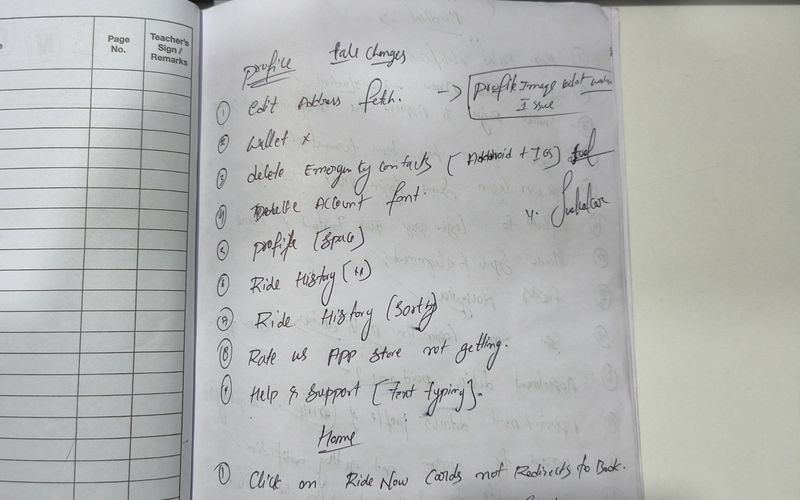 Page No.
Teacher's Sign / Remarks
Profile Tale Changes
① Edit Address fetch. → Profile Image Issue
② Wallet x
③ delete Emergency contacts [Android + Ios]
④ Delete Account font.
⑤ Profile [Space]
⑥ Ride History
⑦ Ride History (Sort by)
⑧ Rate us App Store not getting.
⑨ Help & Support [Text typing].
Home
① Click on Ride Now Cords not Redirects to Book.